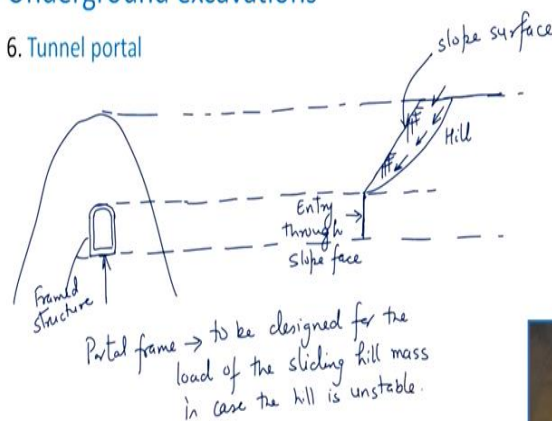 Underground excavations
6. Tunnel portal
slope surface
Hill
Entry
through
slope face
Framed
structure
Portal frame → to be designed for the
load of the sliding hill mass
in case the hill is unstable.